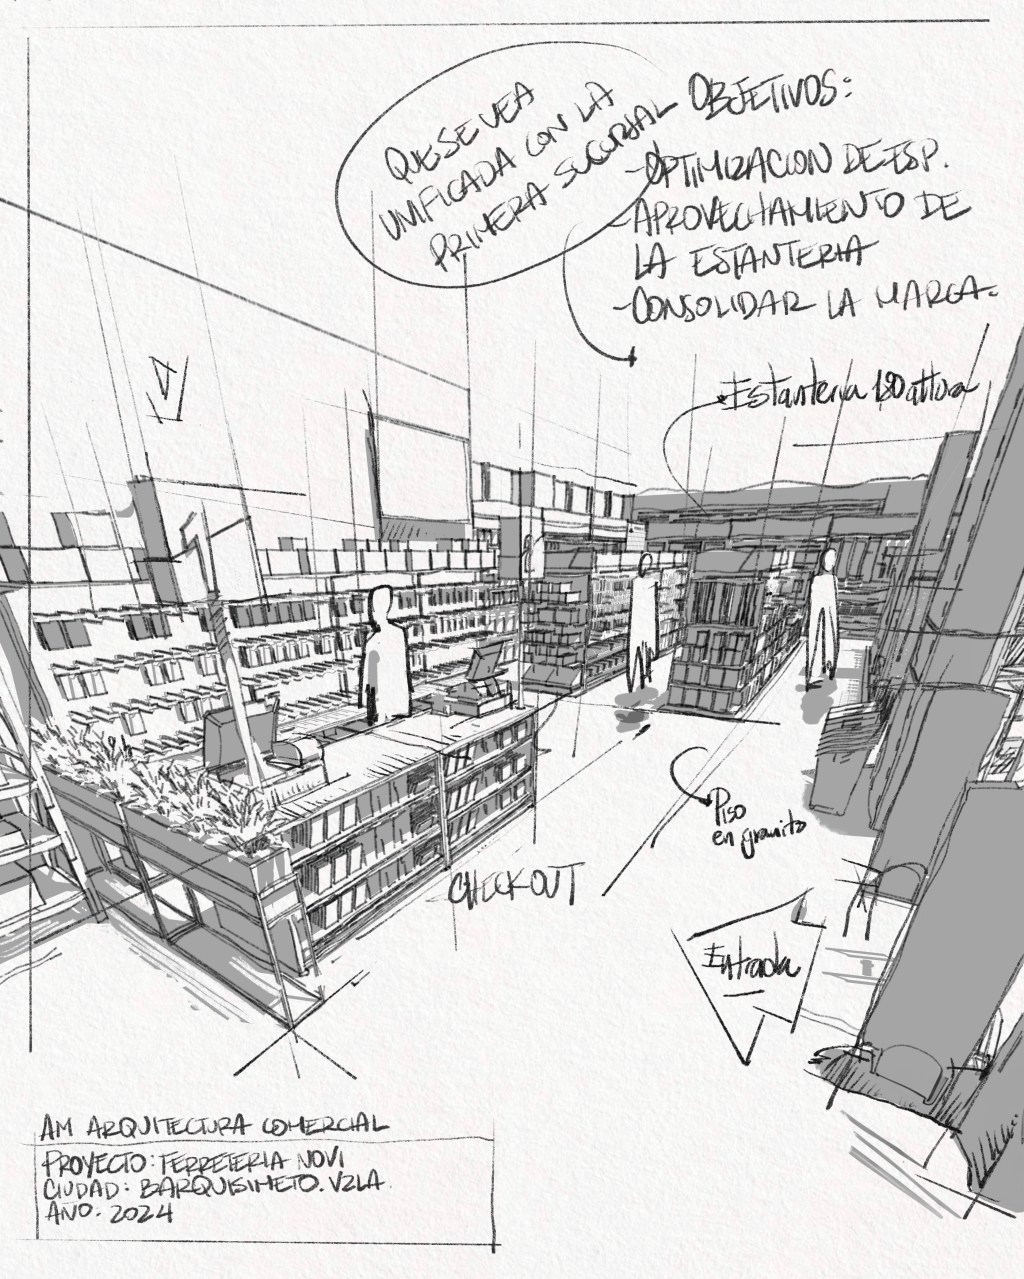 QUE SE VEA
UNIFICADA CON LA
PRIMERA SUCURSAL
OBJETIVOS:
-OPTIMIZACION DE ESP.
-APROVECHAMIENTO DE
LA ESTANTERIA
-CONSOLIDAR LA MARCA.
Estanteria 1.80 altura
Piso
en granito
CHECKOUT
Entrada
AM ARQUITECTURA COMERCIAL
PROYECTO: FERRETERIA NOVI
CIUDAD: BARQUISIMETO. VZLA.
AÑO. 2024